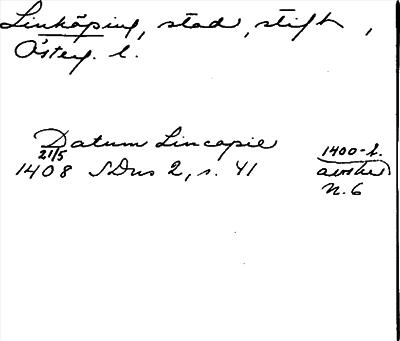 Linköping, stad, stift,
Österg. l.
Datum Lincopie
21/5
1408 SDns 2, s. 41
1400-t.
avskr
N. 6